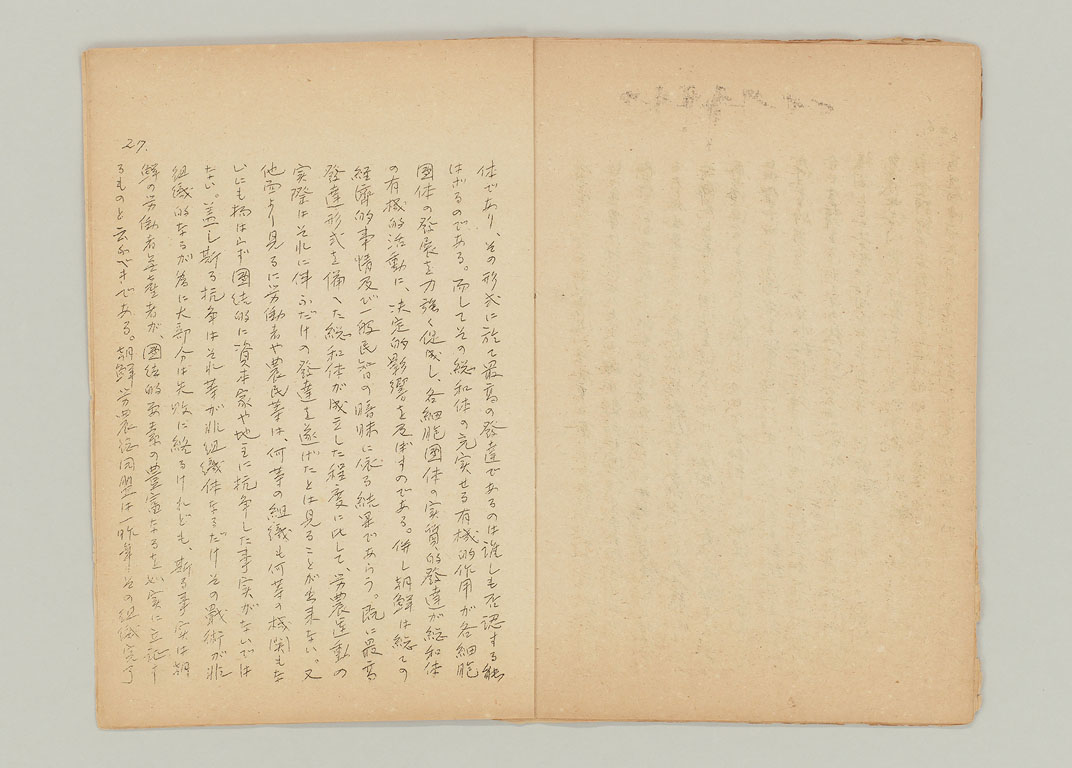 体であり、その形式に於て最高の發達であるのは誰しも否認する能
はざるのである。而してその総和体の充実せる有機的作用が各細胞
團体の發展を力強く促成し、各細胞團体の実質的發達が総和体
の有機的活動に、決定的影響を及ぼすのである。併し朝鮮は総ての
経濟的事情及び一般民智の暗昧に依る結果であらう。既に最高
發達形式を備へた総和体が成立した程度に比して、労農運動の
実際はそれに伴ふだけの發達を遂げたとは見ることが出来ない。又
他面より見るに労働者や農民等は、何等の組織も何等の機関もな
いにも拘はらず團結的に資本家や地主に抗争した事実がないでは
ない。蓋し斯る抗争はそれ等が非組織体なるだけその戰術が非
組織的なるが為に大部分は失敗に終るけれども、斯る事実は朝
鮮の労働者無産者が、團結的要素の豊富なるを如実に立証す
るものと云ふべきである。朝鮮労農総同盟は一昨年その組織完了
27.